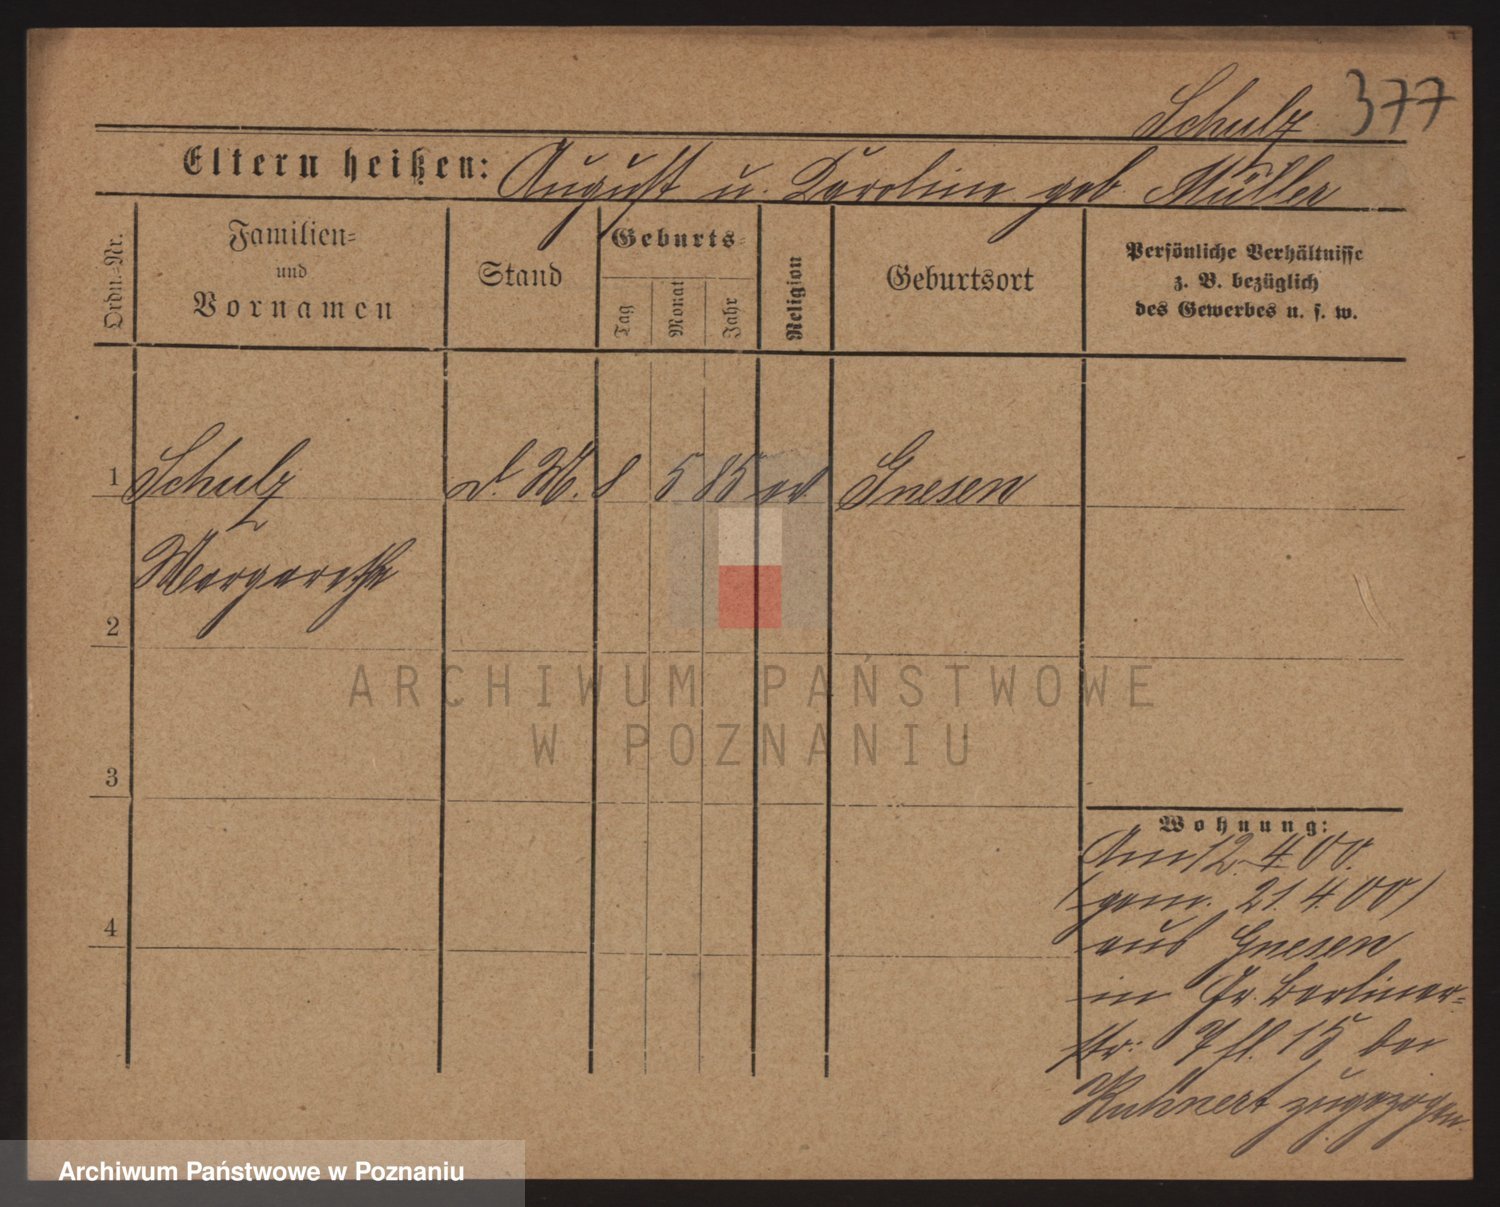 Schulz 377
Eltern heißen: August u. Karoline geb. Müller
Ordn.-Nr.
Familien- und Vornamen
Stand
Geburts-
Tag Monat Jahr
Religion
Geburtsort
Persönliche Verhältnisse
z. B. bezüglich
des Gewerbes u. s. w.
1 Schulz d. M. 8 5 85 ev Gnesen
Margarethe
2
ARCHIWUM PAŃSTWOWE
W POZNANIU
3
Wohnung:
Am 12. 4. 00.
(gem. 21. 4. 00)
4
aus Gnesen
in Gr. Berliner-
str. 15 bei
Kuhnert zugezogen.
Archiwum Państwowe w Poznaniu